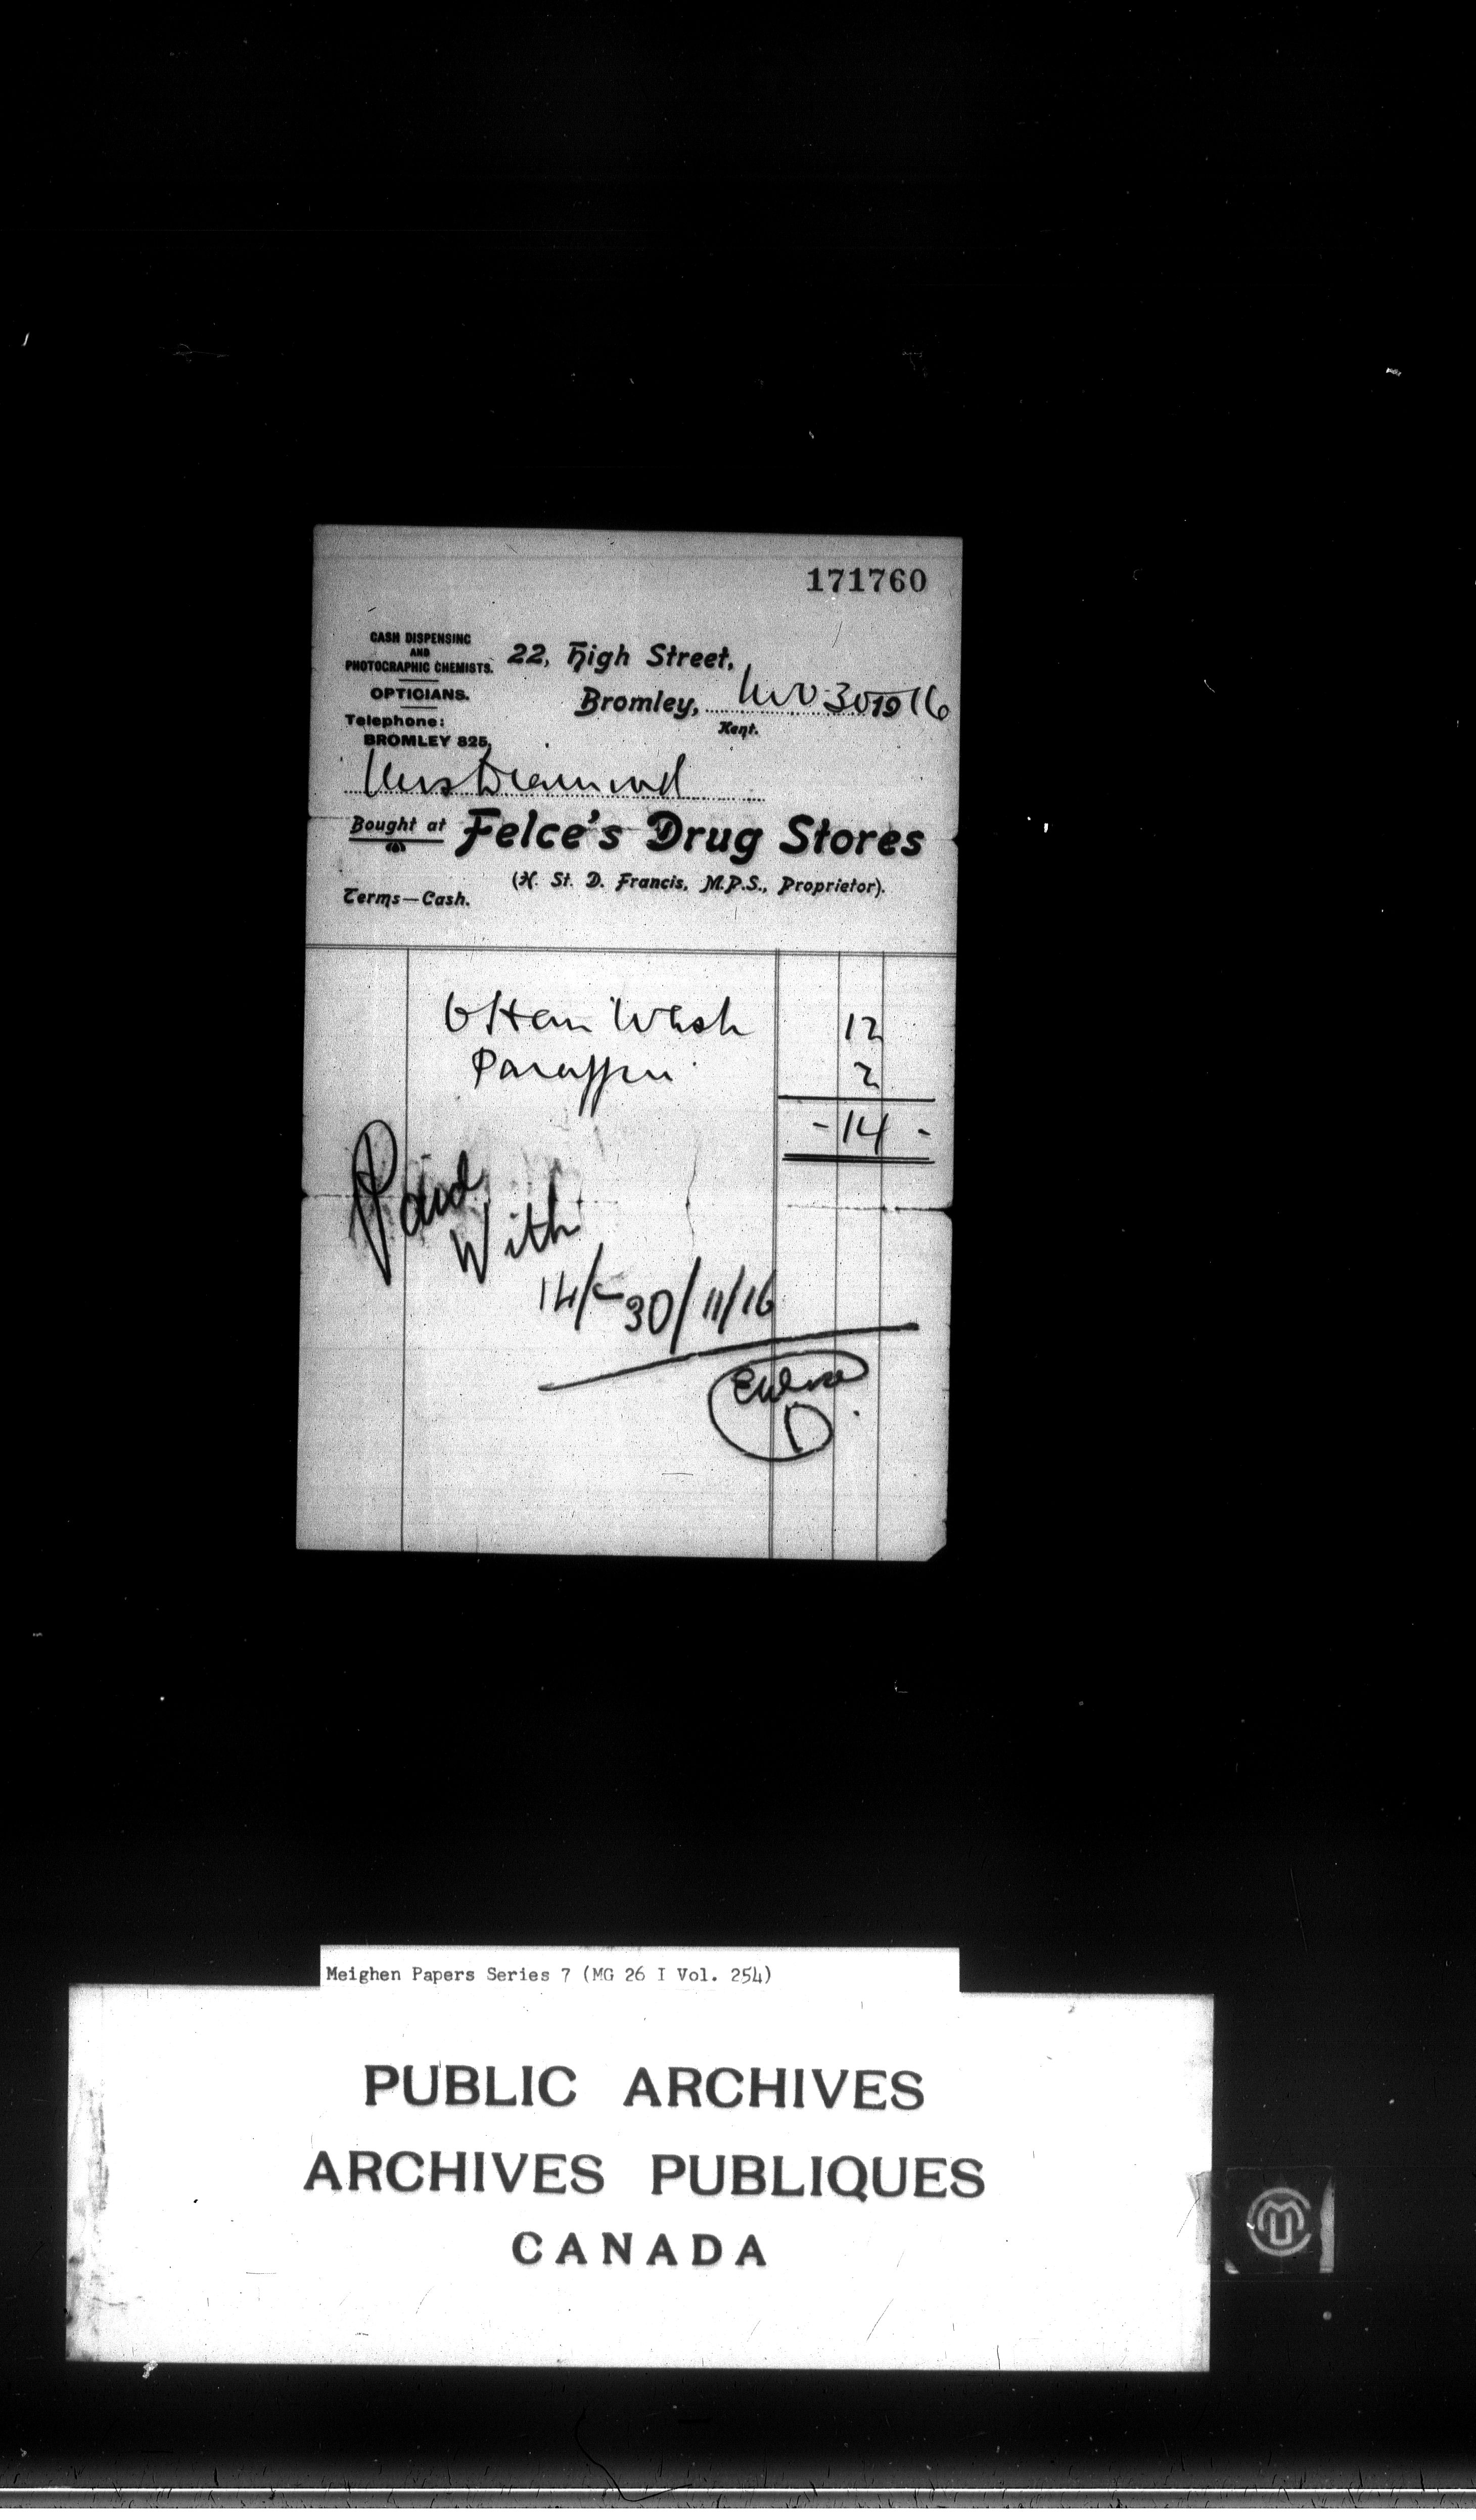 171760
CASH DISPENSING
AND
PHOTOGRAPHIC CHEMISTS.
OPTICIANS.
Telephone:
BROMLEY 825.
22, High Street,
Bromley, Nov 30 1916
Kent.
Mrs Diamond
Bought at Felce's Drug Stores
(H. St. D. Francis, M.P.S., Proprietor).
Terms—Cash.
6 Hair Wash 12
Paraffin 2
- 14 -
Paid
With
14/- 30/11/16
D.
Meighen Papers Series 7 (MG 26 I Vol. 254)
PUBLIC ARCHIVES
ARCHIVES PUBLIQUES
CANADA